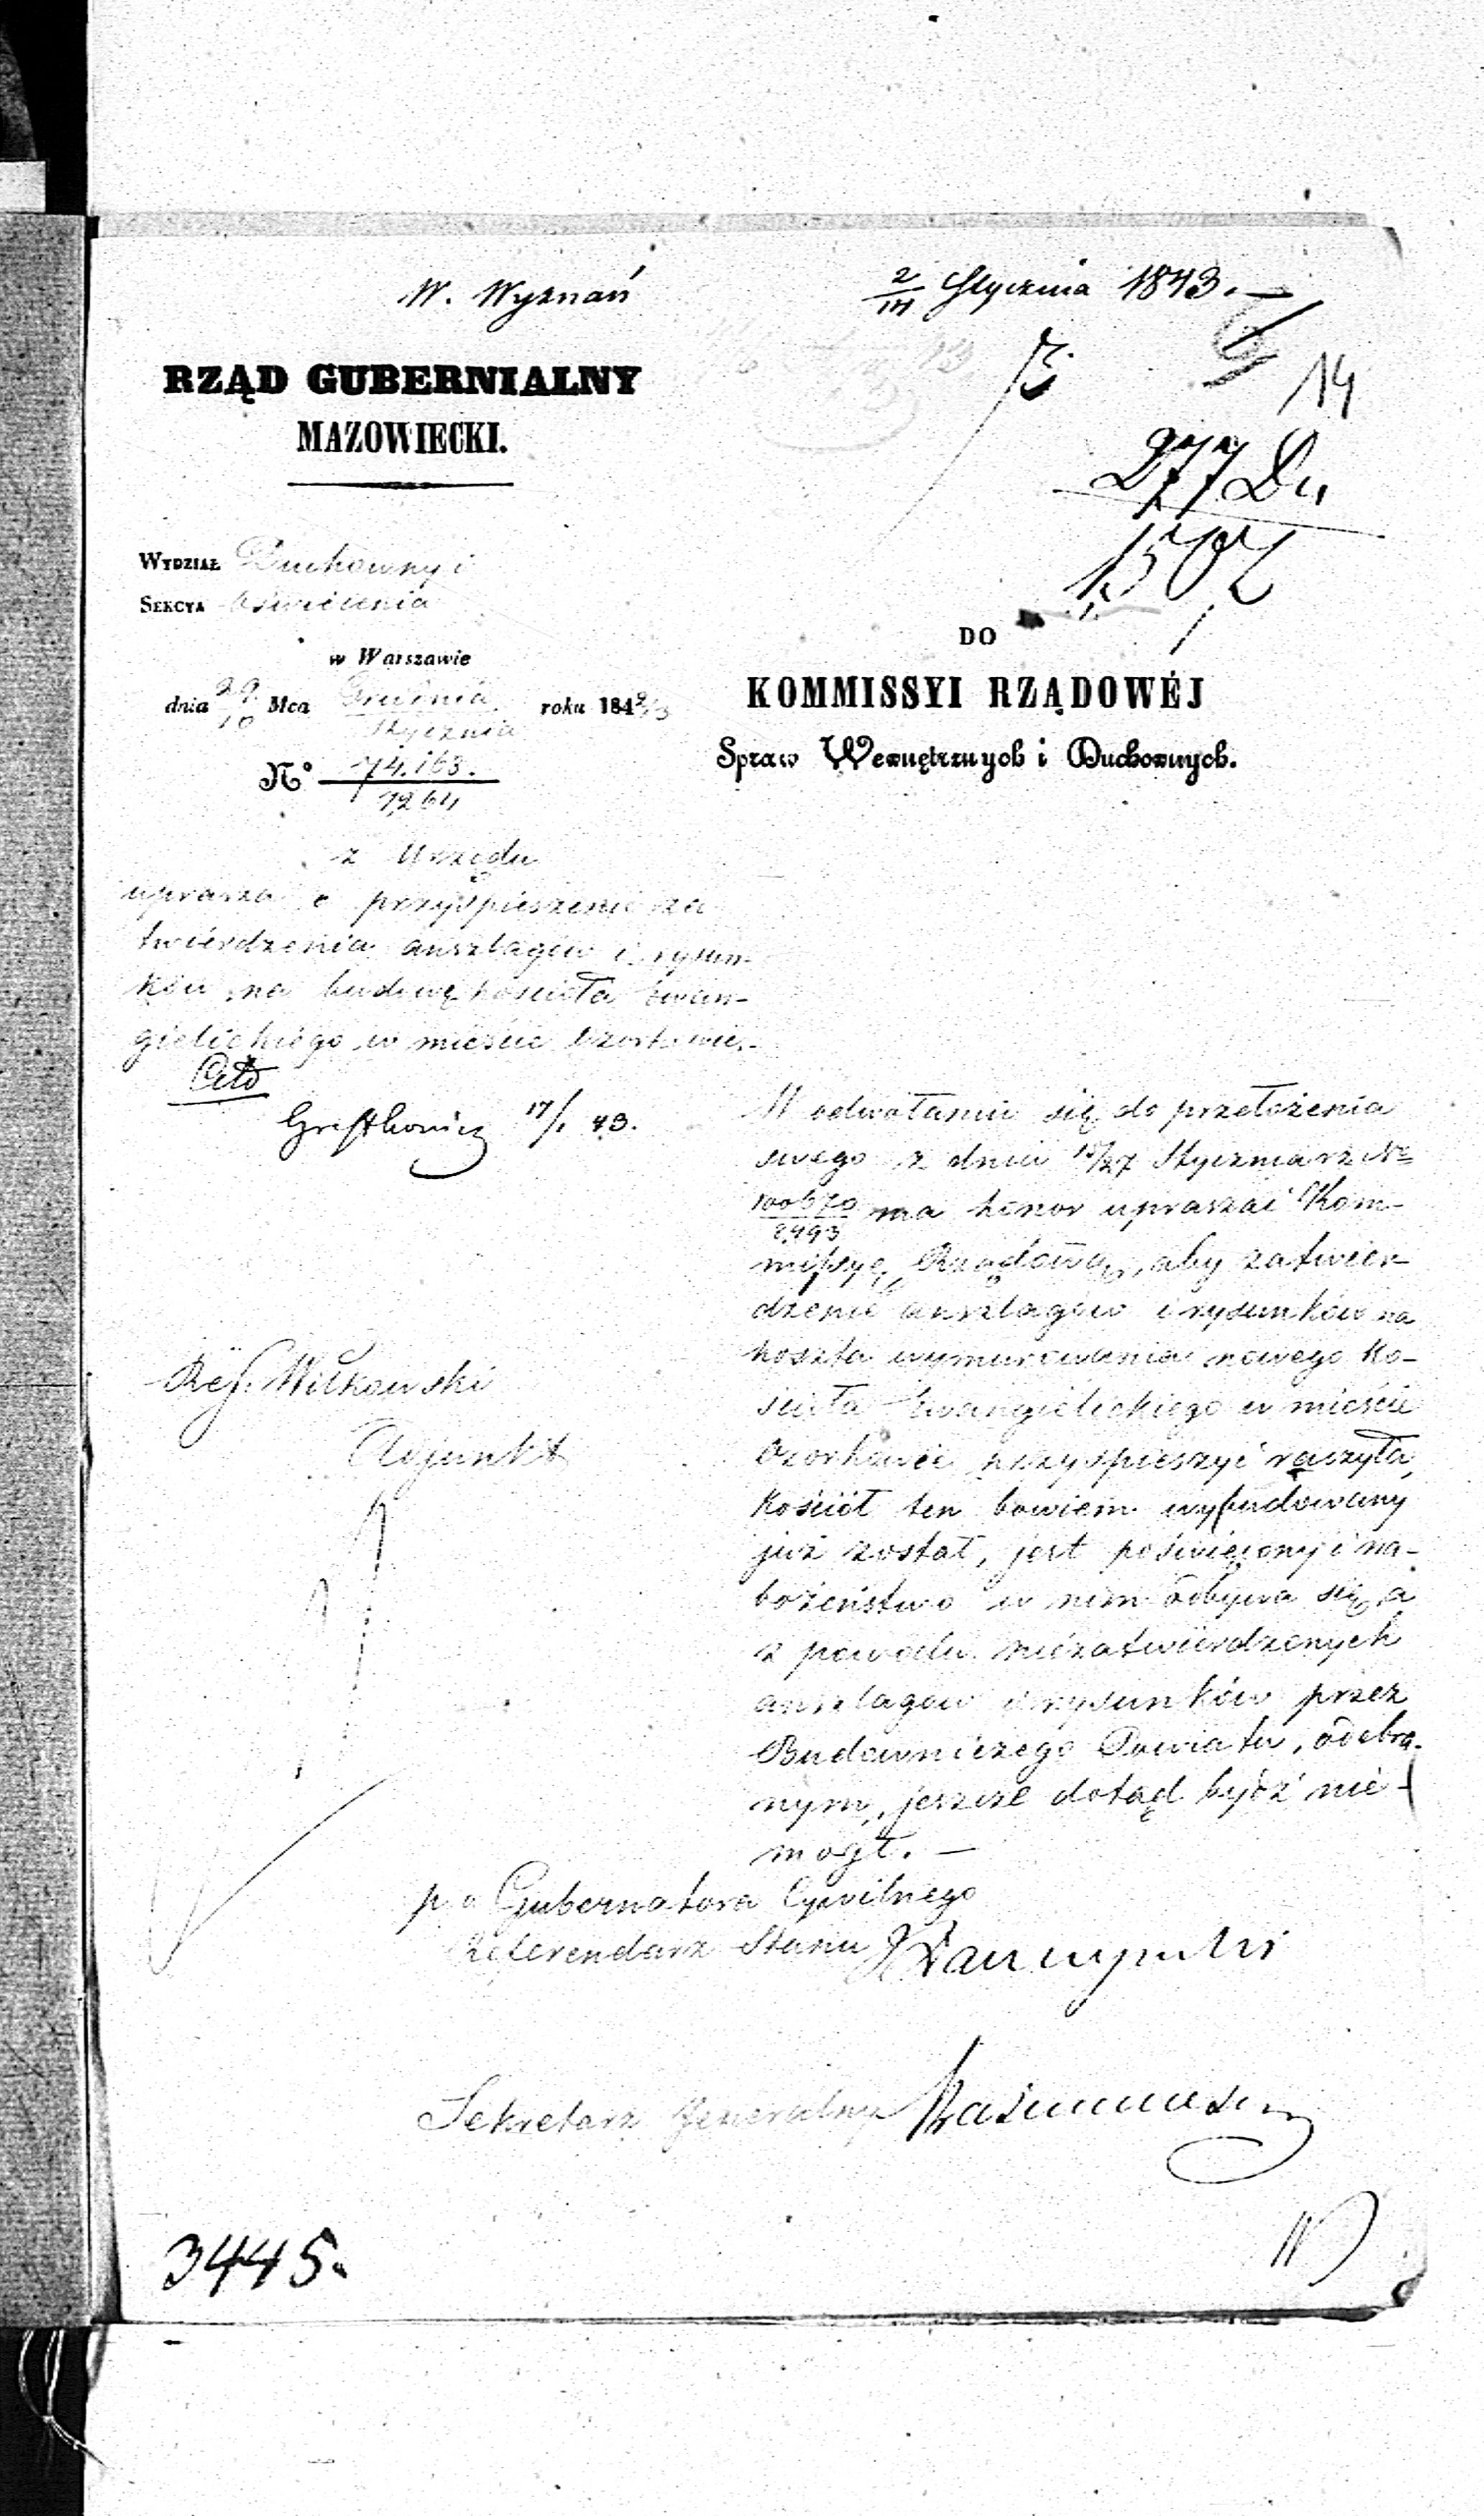 W. Wyznań
2/14 Stycznia 1843.
14
277 Du
1502
RZĄD GUBERNIALNY
MAZOWIECKI.
WYDZIAŁ Duchowny i
SEKCYA Oświecenia
w Warszawie
dnia 29/10 Mca Grudnia/Stycznia roku 1842/3
N° 74.163./1264
DO
KOMMISSYI RZĄDOWÉJ
Spraw Wewnętrznych i Duchownych.
z Urzędu
uprasza o przyśpieszenie za
twierdzenia anszlagów i rysun-
ków na budowę kościoła Ewan-
gielickiego w mieście Ozorkowie.-
17/1 43.
W odwołaniu się do przełożenia
swego z dnia 15/27 Stycznia rz No
100670/2493 ma honor upraszać Kom-
missyę Rządową, aby zatwier-
dzenie anszlagów i rysunków na
koszta wymurowania nowego Ko-
ścioła Ewangielickiego w mieście
Ozorkowie przyspieszyć raczyła,
Kościół ten bowiem wybudowany
już został, jest poświęcony i na-
bożeństwo w nim odbywa się, a
z powodu niezatwierdzonych
anszlagów i rysunków przez
Budowniczego Powiatu, odebra-
nym, jeszcze dotąd bydź nie-
mógł. —
Ref. Witkowski
Adjunkt
p. o Gubernatora Cywilnego
Referendarz Stanu
Sekretarz Jeneralny
3445.